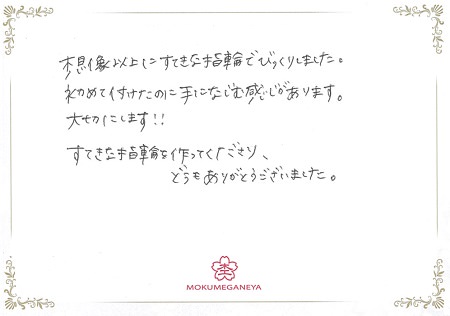 想像以上にすてきな指輪でびっくりしました。
初めて付けたのに手になじむ感じがあります。
大切にします!!
すてきな指輪を作ってくださり、
どうもありがとうございました。
杢
MOKUMEGANEYA